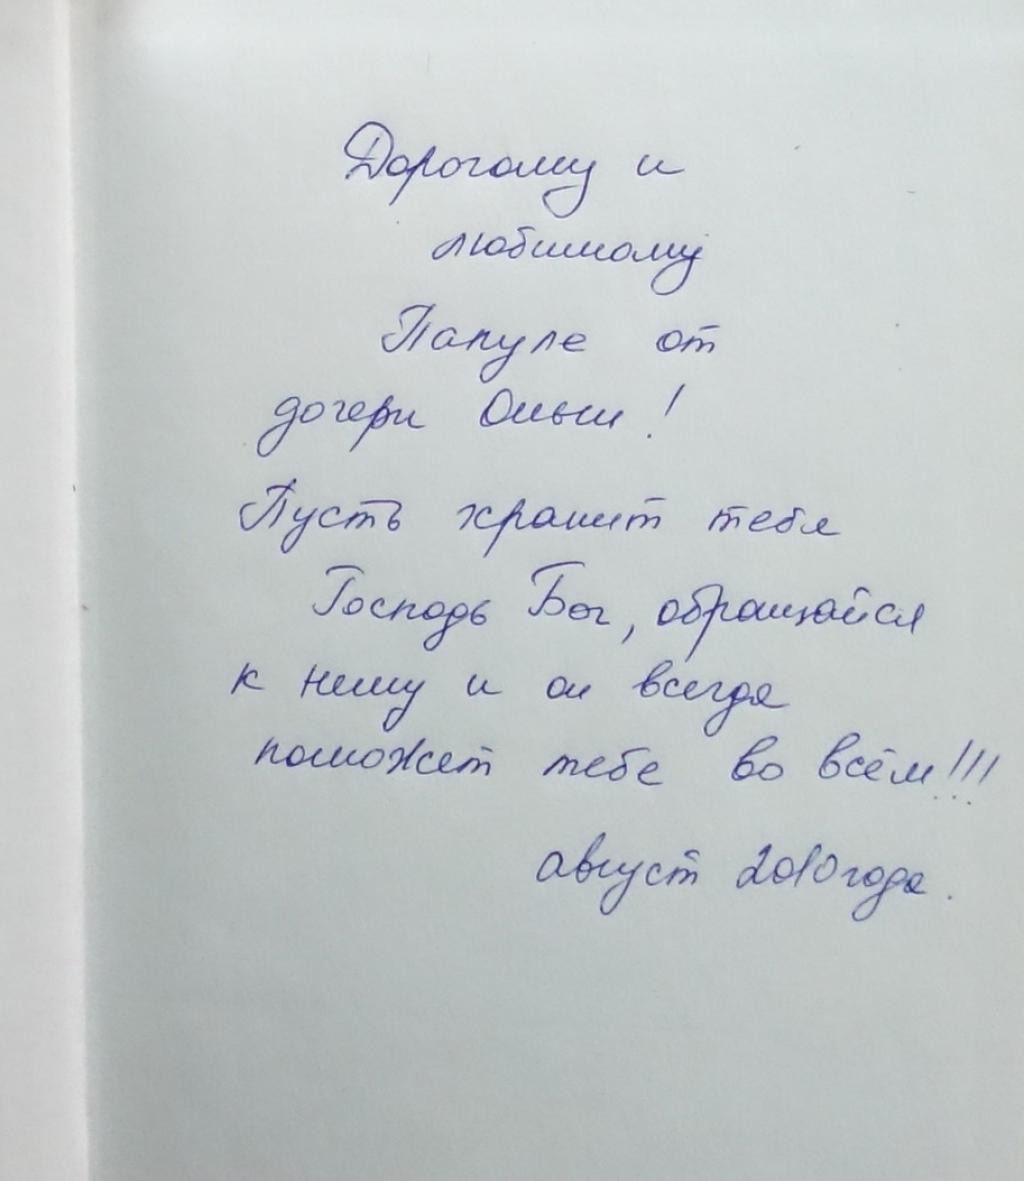 Дорогому и
любимому
Папуле от
дочери Ольги!
Пусть хранит тебя
Господь Бог, обращайся
к нему и он всегда
поможет тебе во всём!!!
август 2010 года.